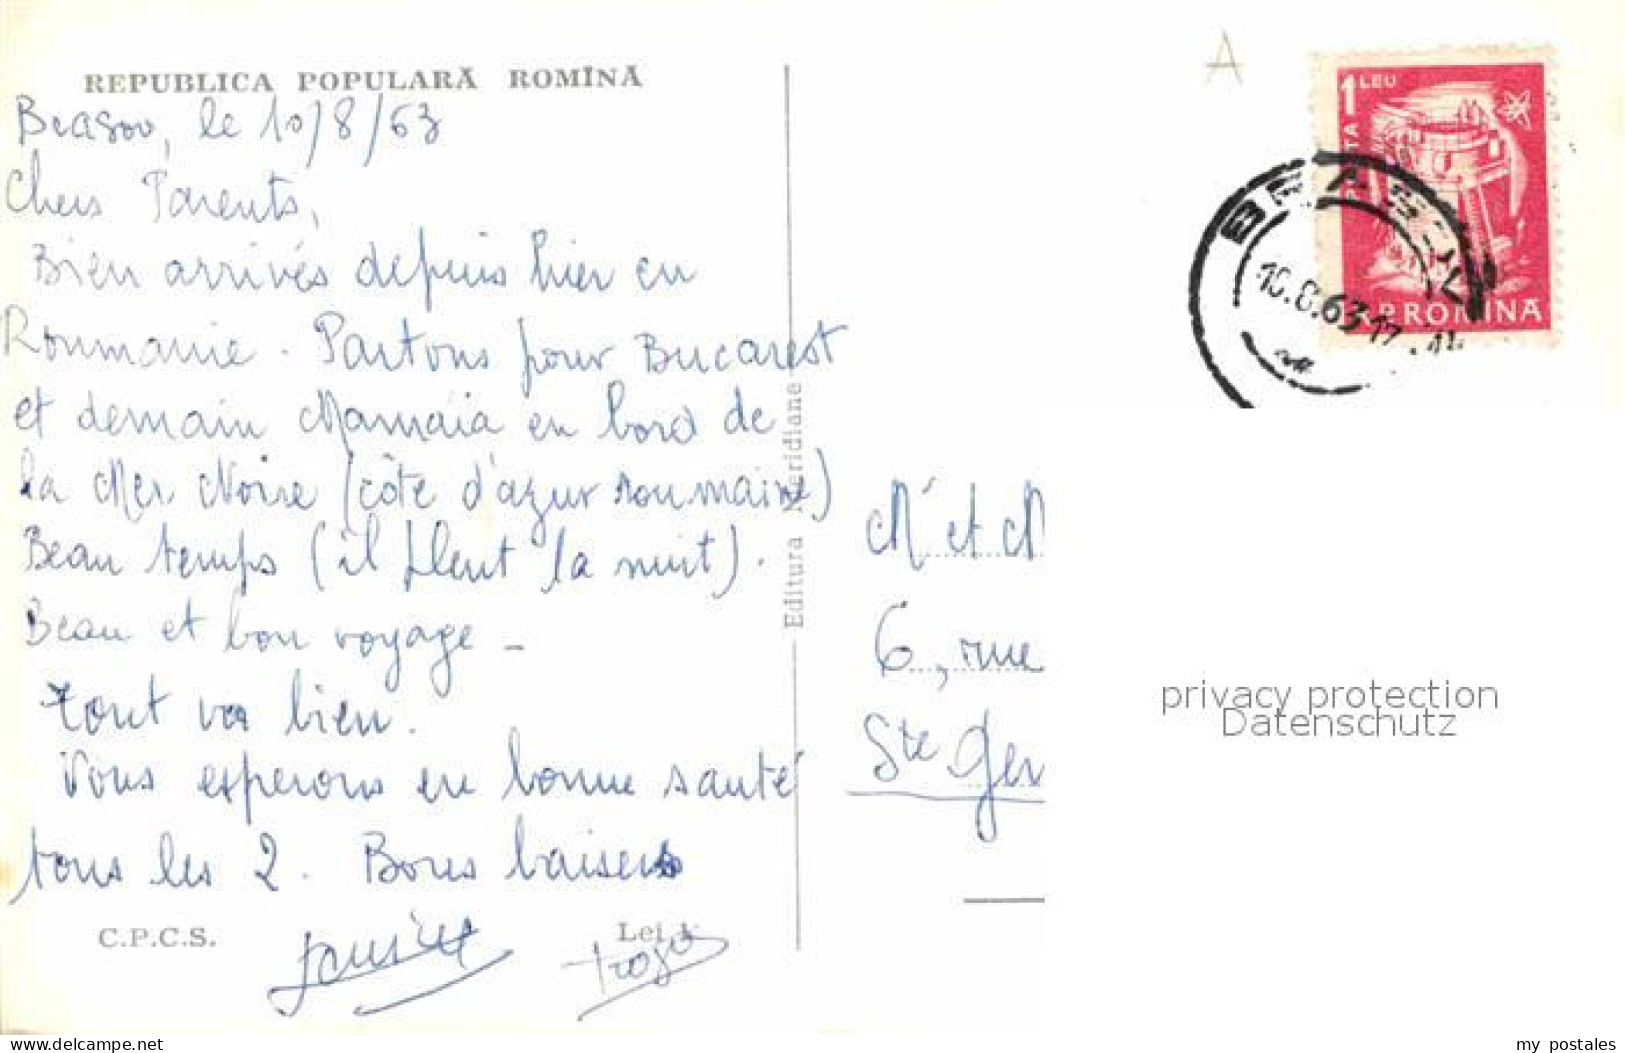 REPUBLICA POPULARĂ ROMÎNĂ
Brasov, le 10/8/63
Chers Parents,
Bien arrivés depuis hier en
Roumanie. Partons pour Bucarest
et demain Mamaia en bord de
la Mer Noire (côte d'azur roumaine)
Beau temps (il pleut la nuit).
Beau et bon voyage -
tout va bien.
Vous esperons en bonne santé
tous les 2. Bons baisers
C.P.C.S.
Lei 1
Editura Meridiane
A
1 LEU
POSTA
R.P.ROMINĂ
10.8.63.17
M et M
6, rue
Ste Gen
privacy protection
Datenschutz
delcampe.net
my_postales